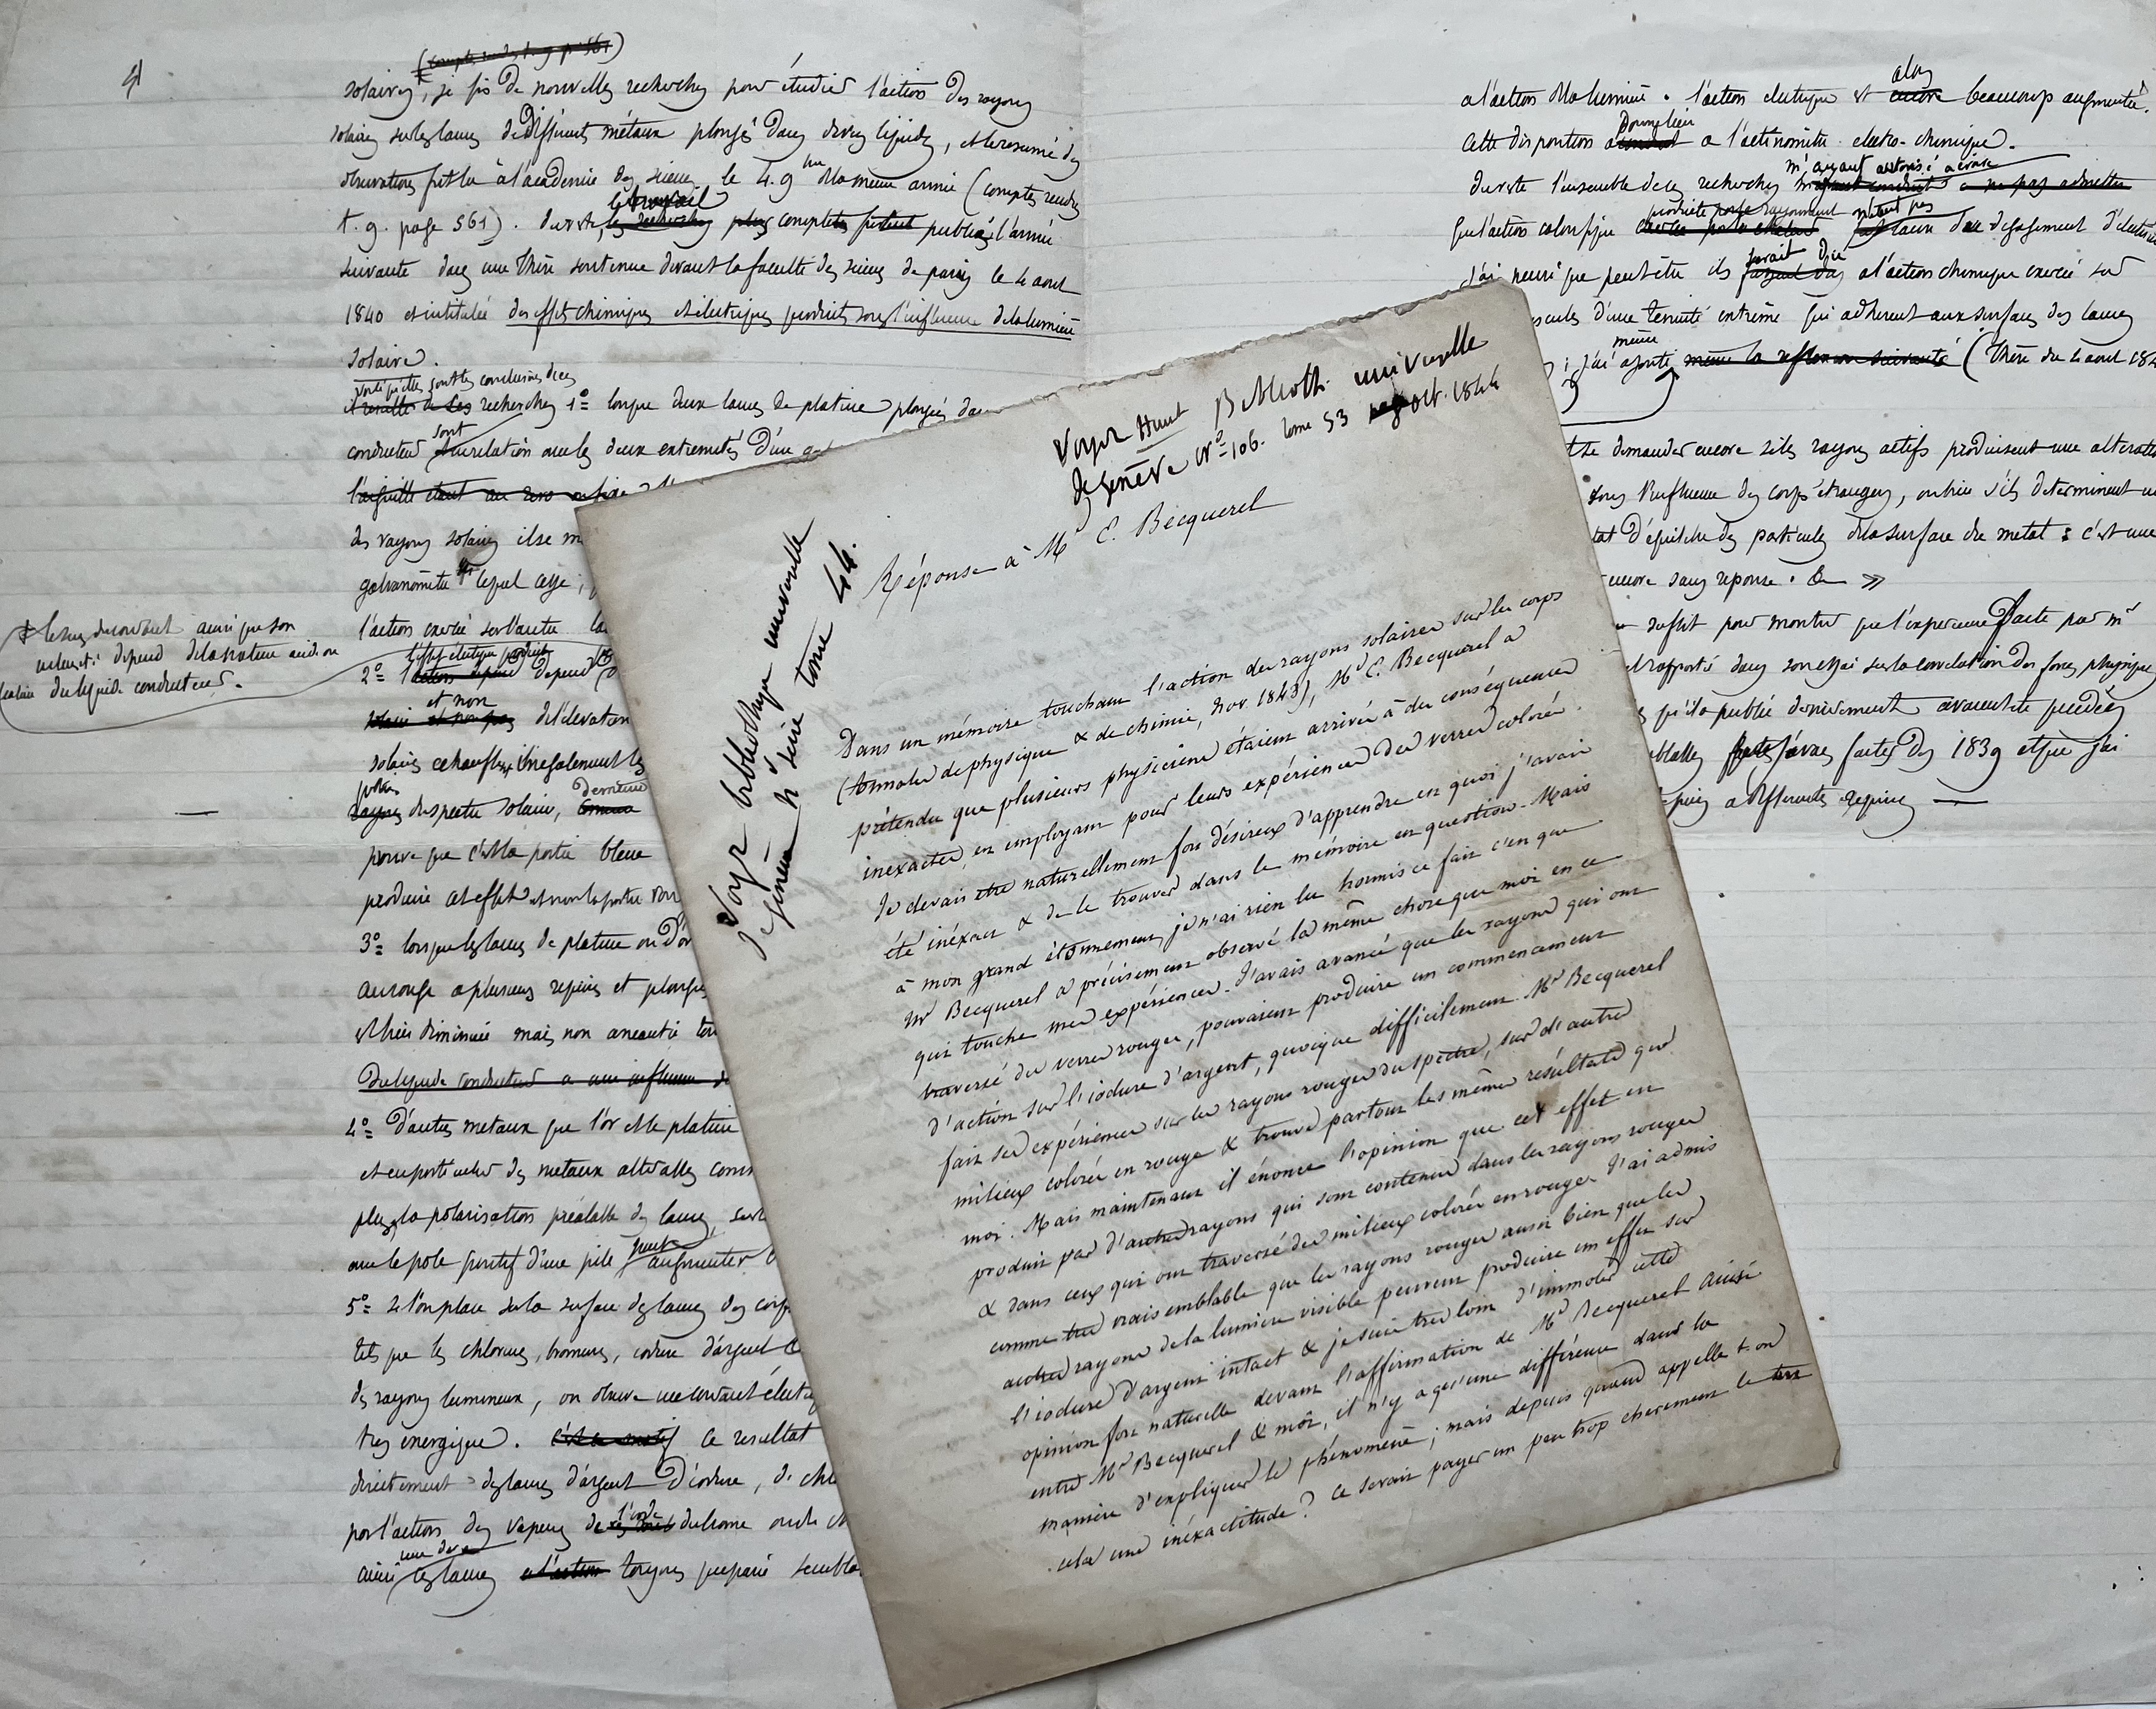 4
solaires, je fis de nouvelles recherches pour étudier l'action des rayons
solaires sur les lames de différents métaux plongés dans divers liquides, et le résumé des
observations fut lu à l'académie des sciences le 4. 9bre de la même année (comptes rendus
t. 9. page 561). du reste, le travail complet publié l'année
suivante dans une thèse soutenue devant la faculté des sciences de paris le 4 aout
1840 et intitulée des effets chimiques et électriques produits sous l'influence de la lumière
solaire.
voici quelles sont les conclusions de ces
recherches 1o lorsque deux lames de platine plongées dans
conducteur sont en relation avec les deux extrémités d'un
l'aiguille étant au zero
des rayons solaires il se m
galvanomètre lequel cesse ;
l'action exercée sur l'autre la
le sens du courant ainsi que son
intensité dépend de la nature acide ou
alcaline du liquide conducteur.
2o l'effet électrique produit dépend
et non de l'élévation
solaires echauffent inégalement les
parties
rayons du spectre solaire,
prouve que c'est la partie bleue
produire cet effet et non la partie
3o lorsque les lames de platine ou d'or
au rouge a plusieurs reprises et plongées
est bien diminuée mais non anéantie
du liquide conducteur a une influence
4o d'autres metaux que l'or et le platine
et en particulier des metaux altérables comm
plus, la polarisation préalable des lames,
avec le pole positif d'une pile peut augmenter
5o si l'on place sur la surface des lames des corps
tels que les chlorures, bromures, iodure d'argent
des rayons lumineux, on observe un courant élect
tres energique. ce resultat
directement des lames d'argent d'iodure, de
par l'action des vapeurs de l'iode du brome ou
ainsi une des lames toujours préparée
a l'action de la lumière. l'action électrique est alors beaucoup augmentée.
cette disposition donne lieu a l'actinomètre electro-chimique.
du reste l'ensemble de ces recherches m'ayant autorisé à croire
que l'action calorifique produite par le rayonnement n'était pas la cause du degagement d'électricité
j'ai pensé que peut être il serait dû a l'action chimique exercée sur
d'une tenuité extrême qui adherent aux surfaces des lames
; j'ai ajouté même (Thèse du 4 aout 184
demander encore si les rayons actifs produisent une alteration
sous l'influence des corps étrangers, ou bien s'ils determinent un
etat d'équilibre des particules de la surface du metal : c'est une
encore sans reponse. »
suffit pour montrer que l'experience faite par mr
rapporté dans son essai sur la correlation des forces physiques
qu'il a publié dernièrement avaient été précédées
j'avais faites des 1839 et que j'ai
a differentes reprises —
Voyez Hunt Biblioth. universelle
de Genève No 106. tome 53 Oct. 1844
Voyez bibliothèque universelle
de Genève No série tome 44.
Réponse à Mr E. Becquerel
Dans un mémoire touchant l'action des rayons solaires sur les corps
(Annales de physique & de chimie, Nov. 1843), Mr E. Becquerel a
prétendu que plusieurs physiciens étaient arrivés à des conséquences
inexactes, en employant pour leurs expériences des verres colorés.
Je devais être naturellement fort désireux d'apprendre en quoi j'avais
été inéxact & de le trouver dans le mémoire en question. Mais
à mon grand étonnement, je n'ai rien lu hormis ce fait c'en que
Mr Becquerel a précisément observé la même chose que moi en ce
qui touche mes expériences. J'avais avancé que les rayons qui ont
traversé des verres rouges, pouvaient produire un commencement
d'action sur l'iodure d'argent, quoique difficilement. Mr Becquerel
fait ses expériences sur les rayons rouges du spectre, sur d'autres
milieux colorés en rouge & trouve partout les mêmes résultats que
moi. Mais maintenant il énonce l'opinion que cet effet est
produit par d'autres rayons qui sont contenus dans les rayons rouges
& dans ceux qui ont traversé des milieux colorés en rouge. J'ai admis
comme très vraisemblable que les rayons rouges aussi bien que les
autres rayons de la lumière visible peuvent produire un effet sur
l'iodure d'argent intact & je suis très loin d'immoler cette
opinion fort naturelle devant l'affirmation de Mr Becquerel. Ainsi
entre Mr Becquerel & moi, il n'y a qu'une différence dans la
manière d'expliquer le phénomène ; mais depuis quand appelle t-on
cela une inéxactitude? Ce serait payer un peu trop chèrement le